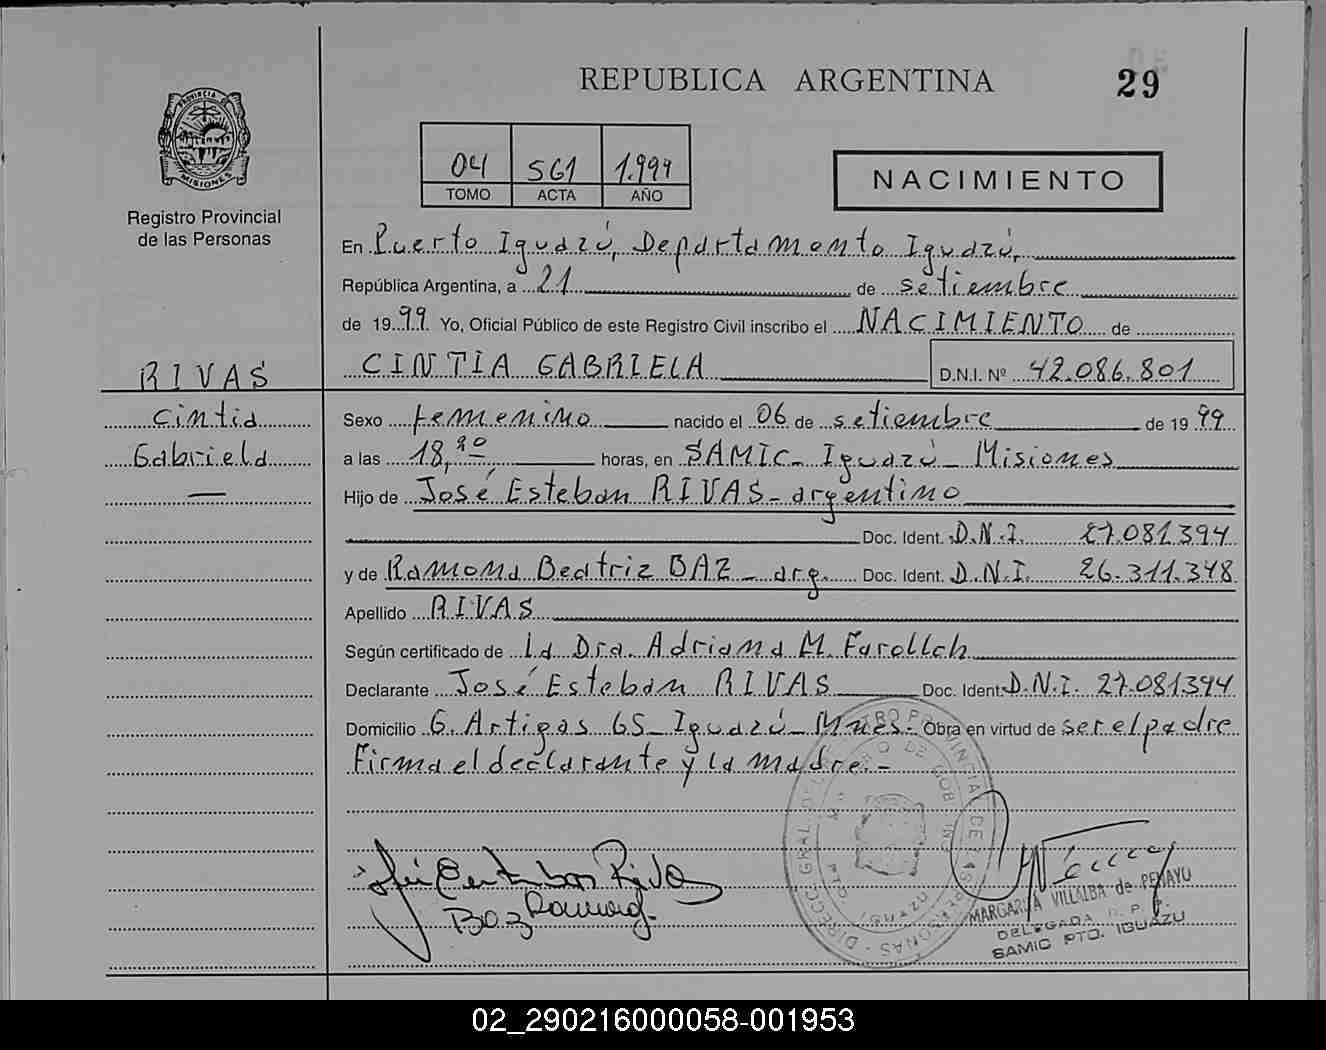 REPUBLICA ARGENTINA
29
PROVINCIA DE MISIONES
Registro Provincial
de las Personas
04 561 1.999
TOMO ACTA AÑO
NACIMIENTO
En Puerto Iguazú, Departamento Iguazú,
República Argentina, a 21 de setiembre
de 1999 Yo, Oficial Público de este Registro Civil inscribo el NACIMIENTO de
CINTIA GABRIELA D.N.I. Nº 42.086.801
RIVAS
Cintia
Gabriela
—
Sexo femenino nacido el 06 de setiembre de 1999
a las 18, horas, en SAMIC - Iguazú - Misiones
Hijo de José Esteban RIVAS - argentino
Doc. Ident. D.N.I. 27.081.394
y de Ramona Beatriz BAZ - arg. Doc. Ident. D.N.I. 26.311.348
Apellido RIVAS
Según certificado de La Dra. Adriana M.
Declarante José Esteban RIVAS Doc. Ident. D.N.I. 27.081394
Domicilio G. Artigas 65 - Iguazú - Mnes. Obra en virtud de ser el padre
Firma el declarante y la madre. -
José Esteban Rivas
Baz Ramona
MARGARITA VILLALBA de PENAYO
DELEGADA R. P. P.
SAMIC PTO. IGUAZU
02_290216000058-001953